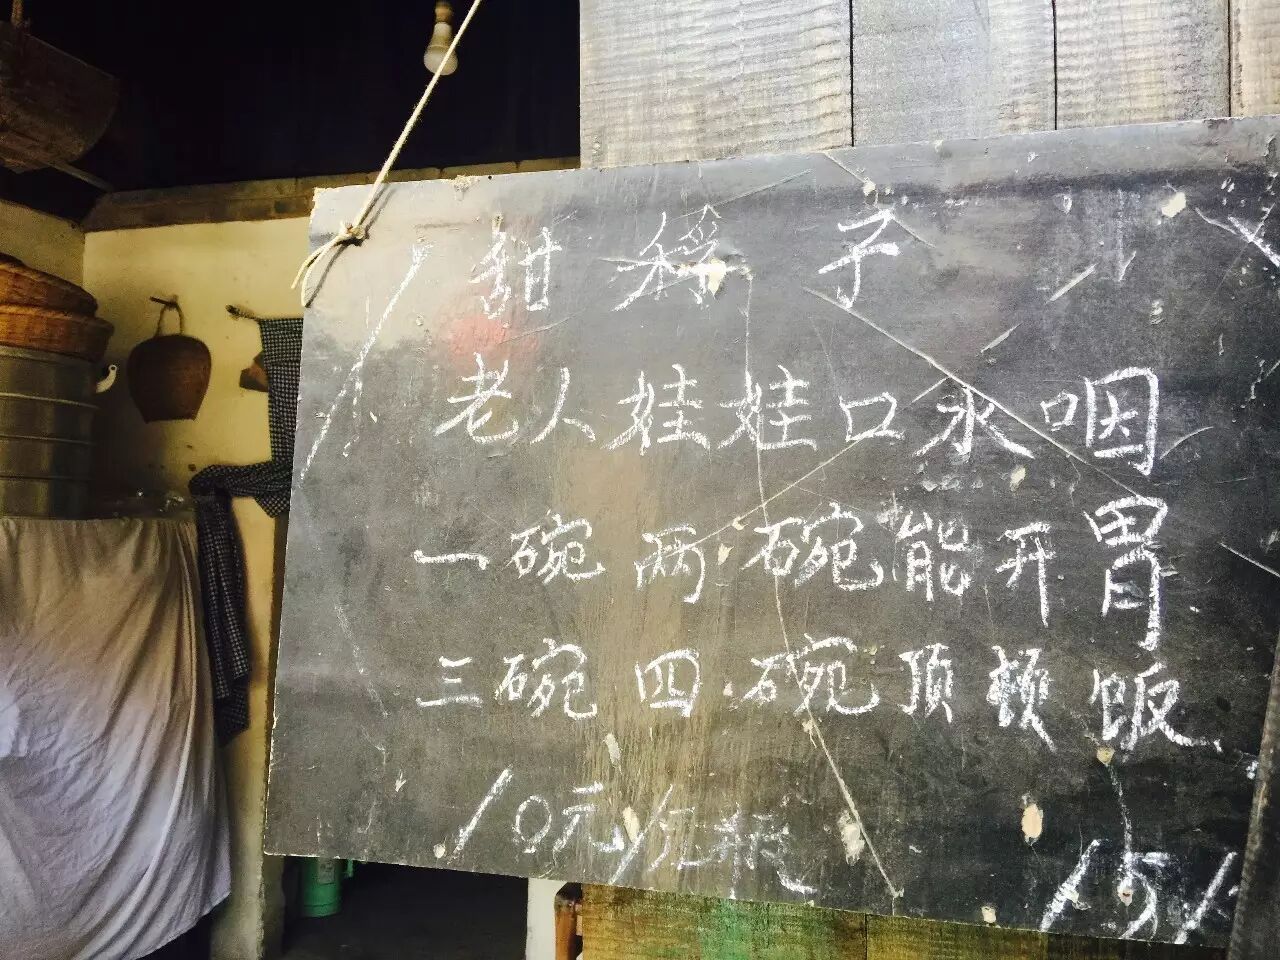 甜稃子
老人娃娃口水咽
一碗两碗能开胃
三碗四碗顶顿饭
10元/